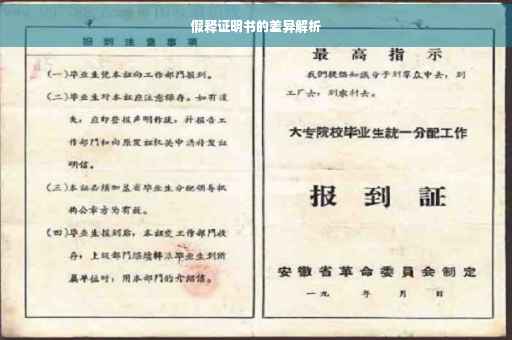 假释证明书的差异解析
报到注意事项
(一)毕业生凭本证向工作部門报到。
(二)毕业生对本证应注意保存。如有遗
失,应即登报声明作废,并报告工
作部門和向原发证机关申請补发证
明信。
(三)本证必须加盖省毕业生分配领导机
构公章方为有效。
(四)毕业生报到后,本证交工作部門收
存;上级部門
毕业生到所
属单位时,用本部門的介紹信。
最高指示
我們提倡知識分子到羣众中去,到
工厂去,到农村去。
大专院校毕业生統一分配工作
报到証
安徽省革命委員会制定
一九 年 月 日